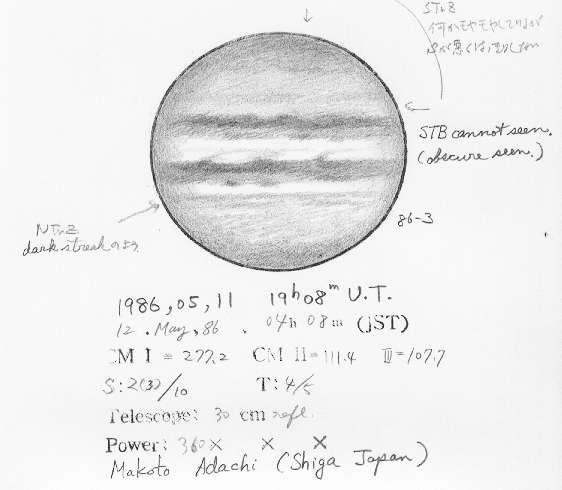 STrZ
何かモヤモヤしているが
Sが悪くはっきりしない
STB cannot seen.
(obscure seen.)
86-3
NTrZ
dark streak のよう
1986, 05, 11 19h08m U.T.
12. May, 86. 04h 08m (JST)
CM I = 277.2 CM II = 111.4 III = 107.7
S: 2(3)/10 T: 4/5
Telescope: 30 cm refl.
Power: 360× × ×
Makoto Adachi (Shiga Japan)